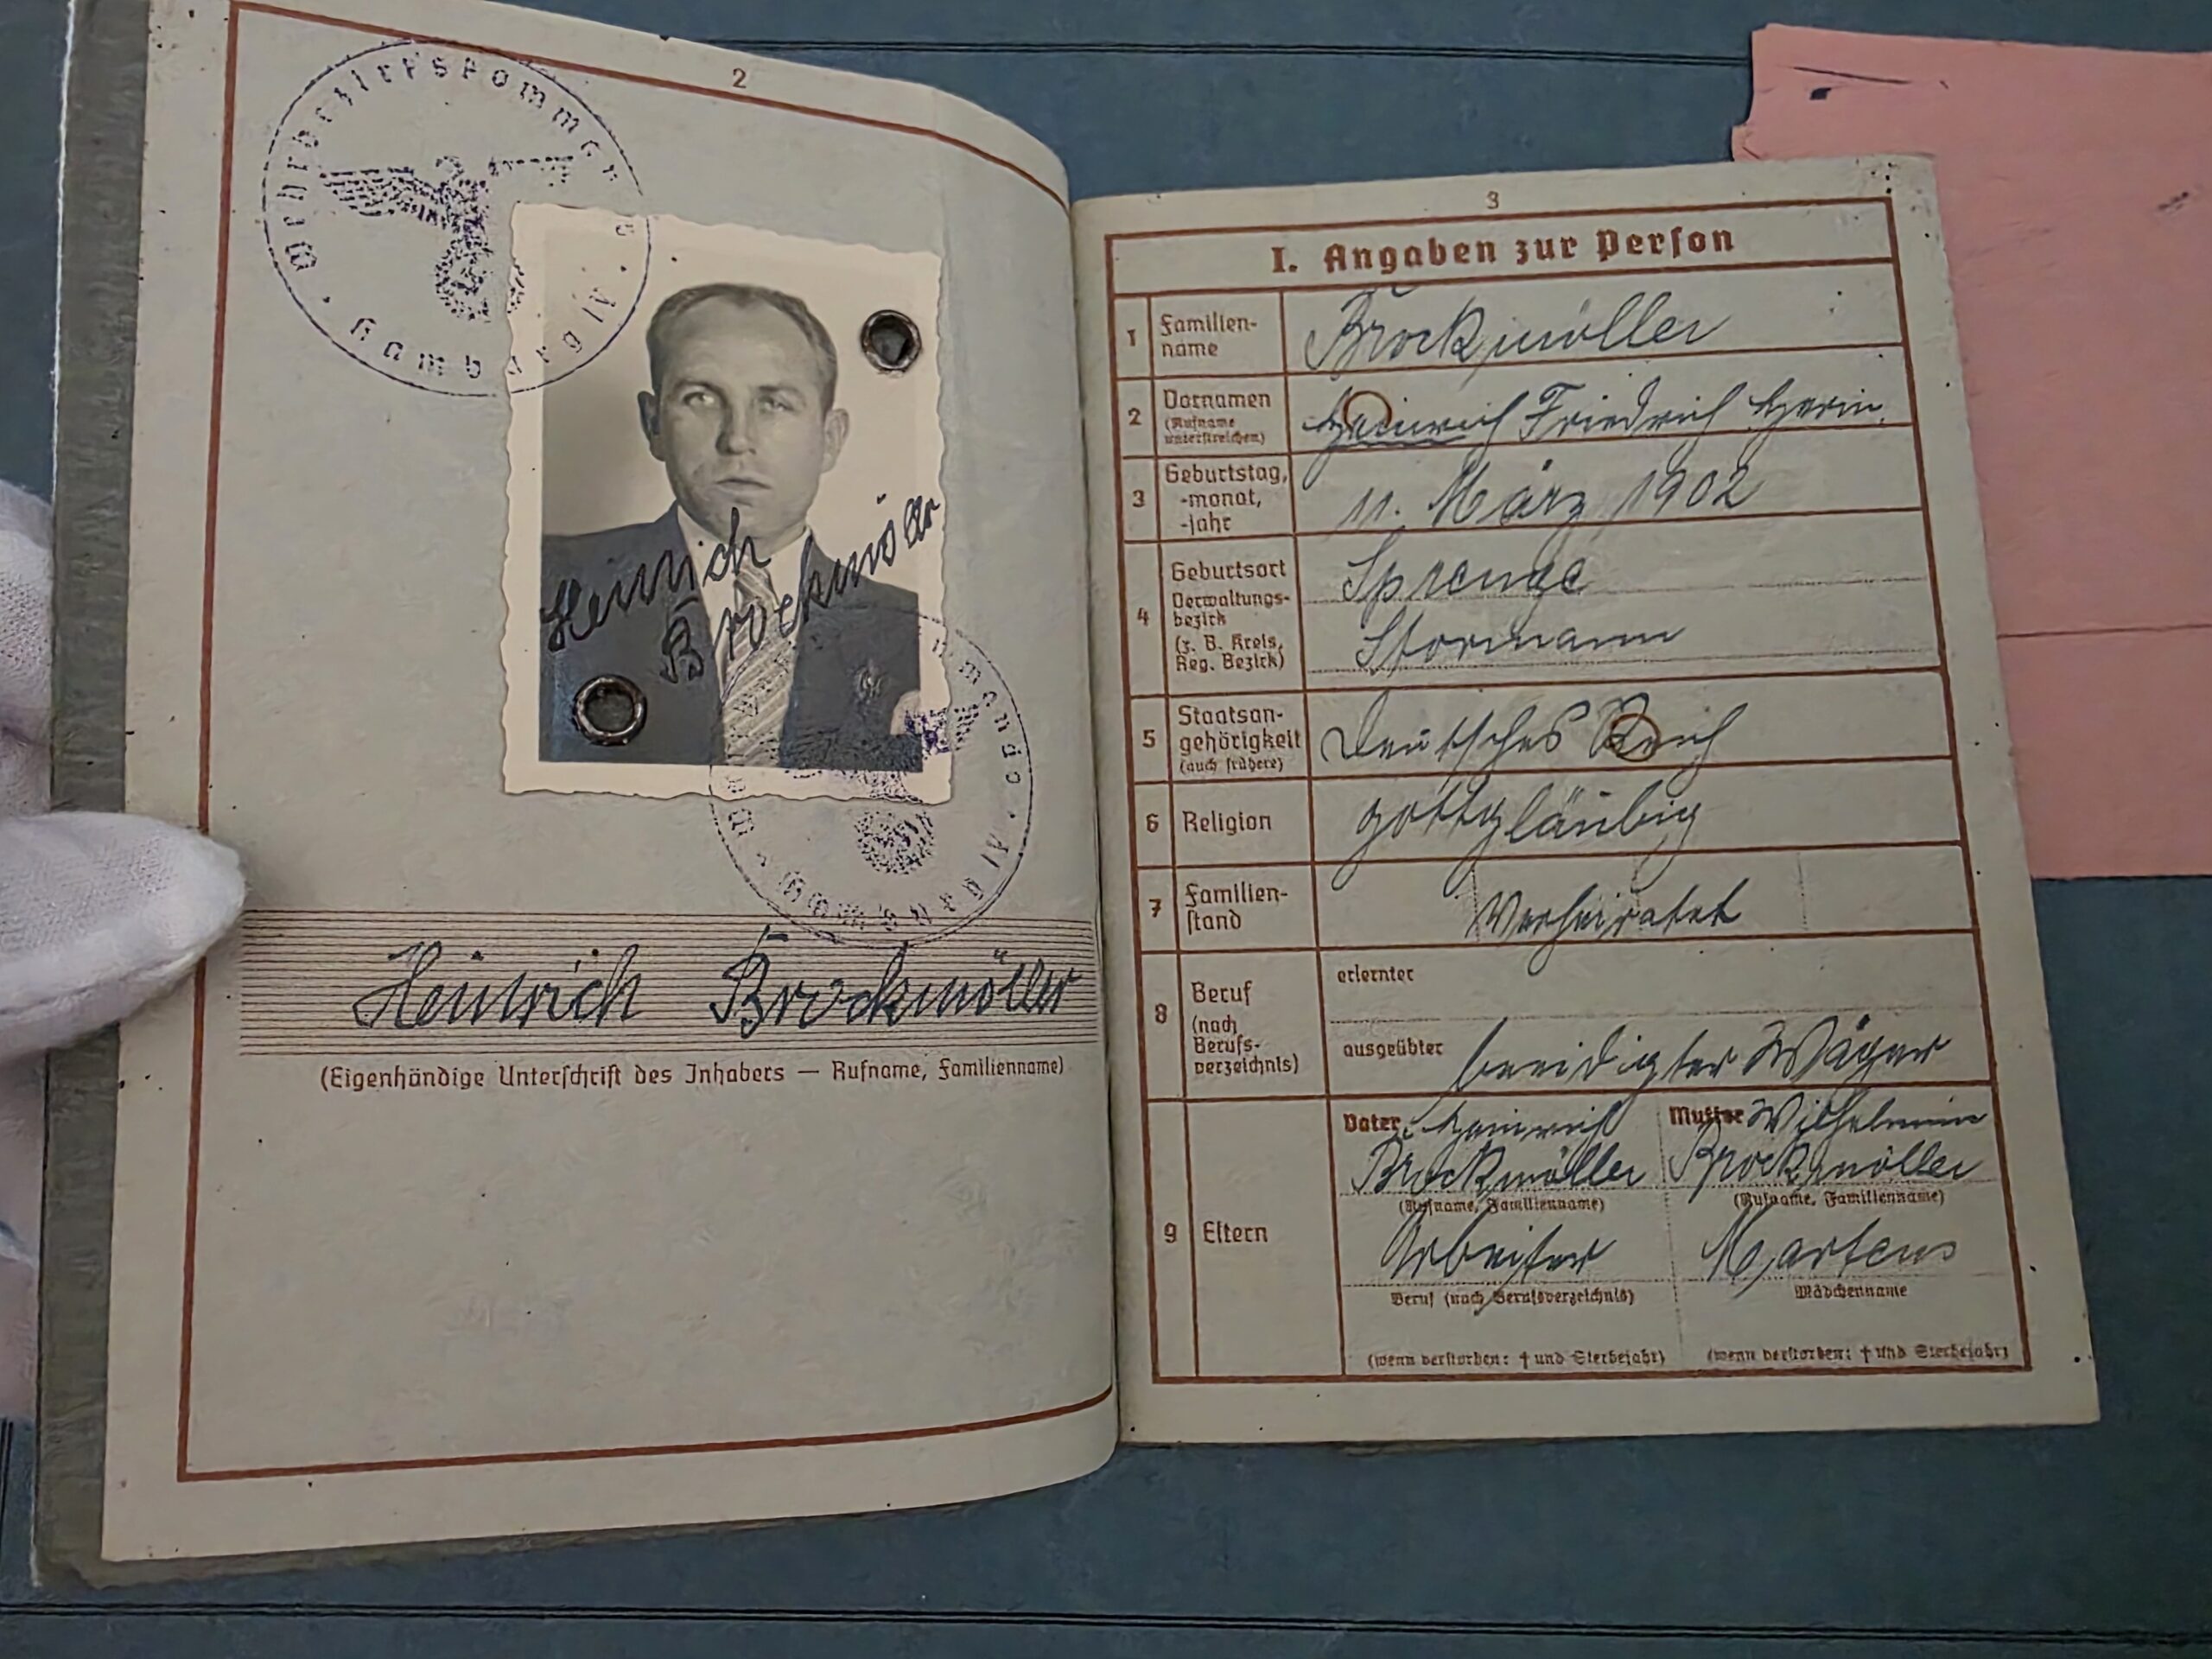 2
Wehrbezirkskommando
Hamburg IV
Heinrich
Brockmöller
Hamburg IV
Heinrich Brockmöller
(Eigenhändige Unterschrift des Inhabers — Rufname, Familienname)
3
I. Angaben zur Person
1 Familien-
name
Brockmöller
2 Vornamen
(Rufname
unterstreichen)
Heinrich Friedrich
3 Geburtstag,
-monat,
-jahr
11. März 1902
4 Geburtsort
Verwaltungs-
bezirk
(z. B. Kreis,
Reg. Bezirk)
Sprenge
Stormarn
5 Staatsan-
gehörigkeit
(auch frühere)
Deutsches Reich
6 Religion
gottgläubig
7 Familien-
stand
Verheiratet
8 Beruf
(nach
Berufs-
verzeichnis)
erlernter
ausgeübter beeidigter Wäger
9 Eltern
Vater Heinrich
Brockmöller
(Rufname, Familienname)
Arbeiter
Beruf (nach Berufsverzeichnis)
(wenn verstorben: † und Sterbejahr)
Mutter Wilhelmine
Brockmöller
(Rufname, Familienname)
Martens
Mädchenname
(wenn verstorben: † und Sterbejahr)